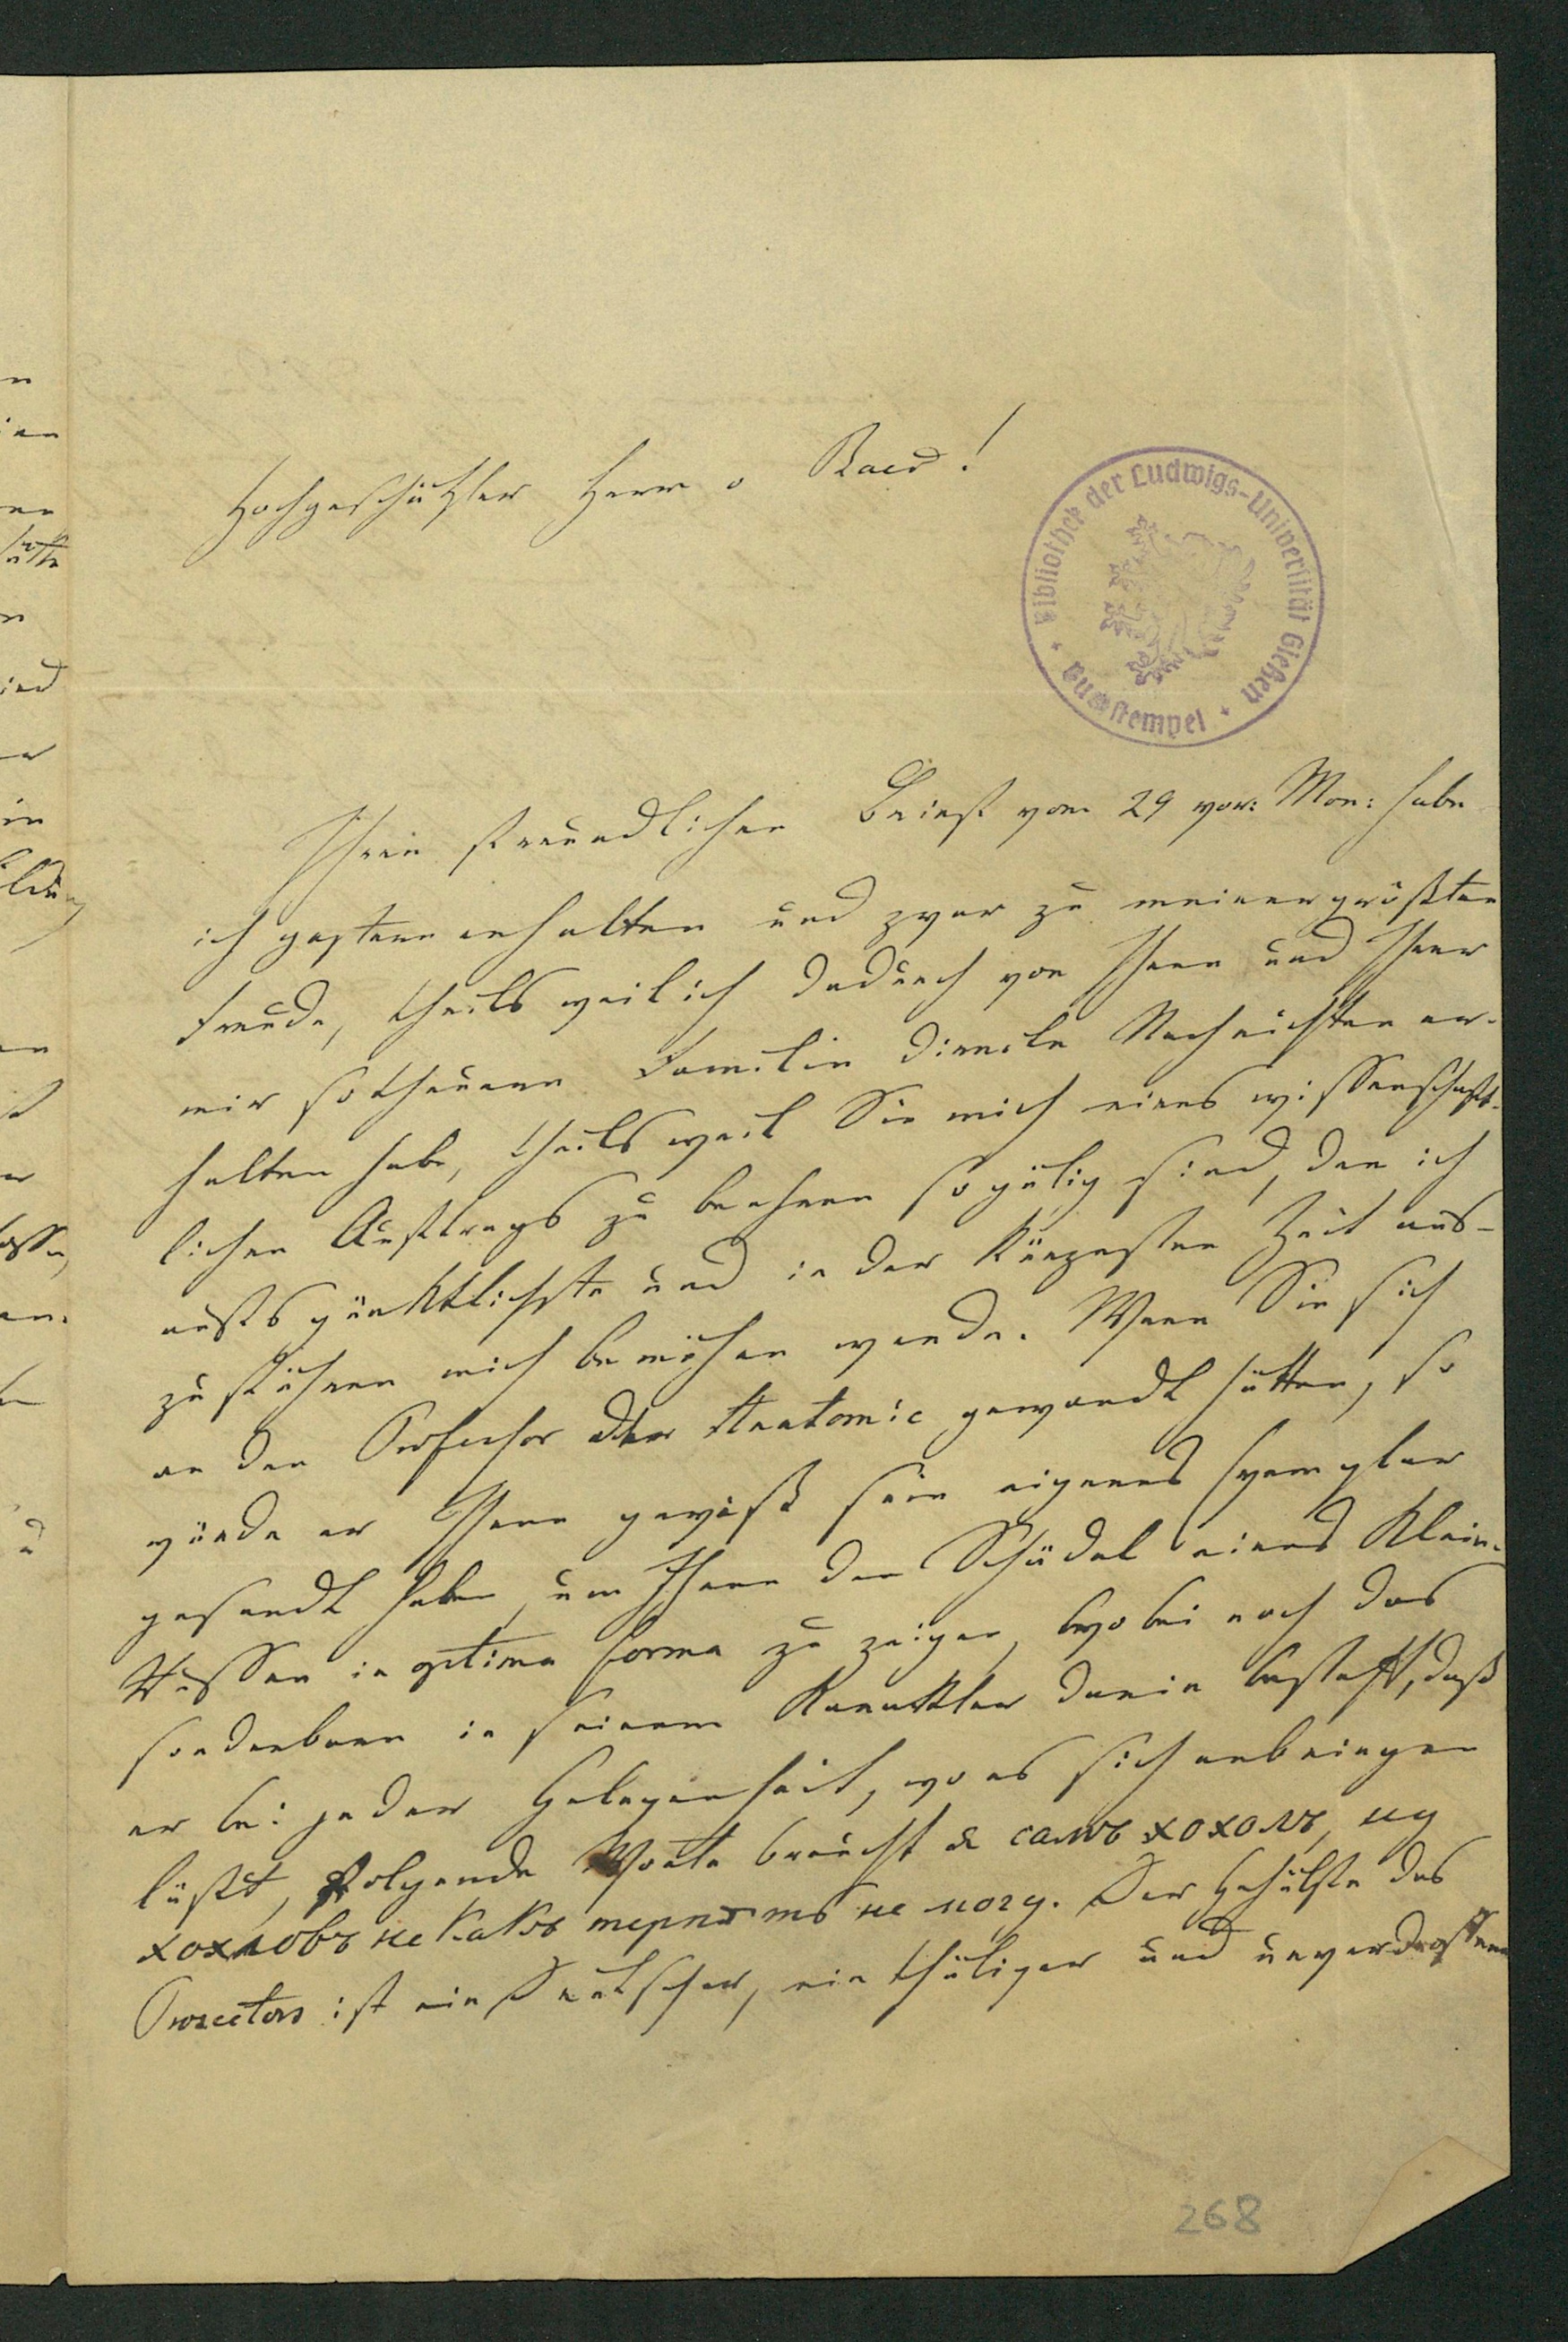 Hochgeschätzter Herr v Baer!
Bibliothek der Ludwigs-Universität Gießen
stempel
Ihren freundlichen Brief vom 29 vor: Mon: habe
ich gestern erhalten und zwar zu meiner größten
Freude, theils weil ich dadurch von Ihnen und Ihrer
mir so theuern Familie directe Nachrichten er-
halten habe, theils weil Sie mich eines wissenschaft-
lichen Auftrags zu beehren so gütig sind, den ich
aufs pünktlichste und in der kürzesten Zeit aus-
zuführen mich bemühen werde. Wenn Sie sich
an den Professor der Anatomie gewandt hätten, so
würde er Ihnen gewiß sein eigenes Exemplar
gesandt haben, um Ihnen den Schädel eines Klein-
Russen in optima forma zu zeigen, wobei noch das
sonderbare in seinem Karakter darin besteht, daß
er bei jeder Gelegenheit, wo es sich anbringen
läßt, folgende Worte braucht я самъ хохолъ, ну
хохловъ не какъ терпѣть не могу. Der Gehülfe des
Prosectors ist ein Deutscher, ein thätiger und unverdrossener
268